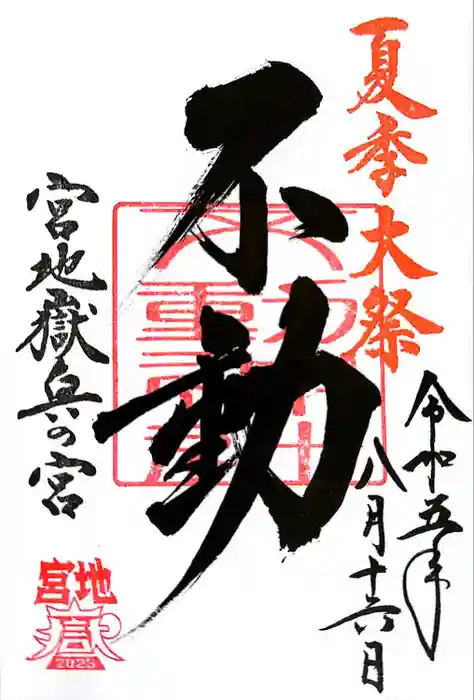 夏季大祭
令和五年
八月十六日
不動
宮地嶽兵の宮
宮地
嶽
2023